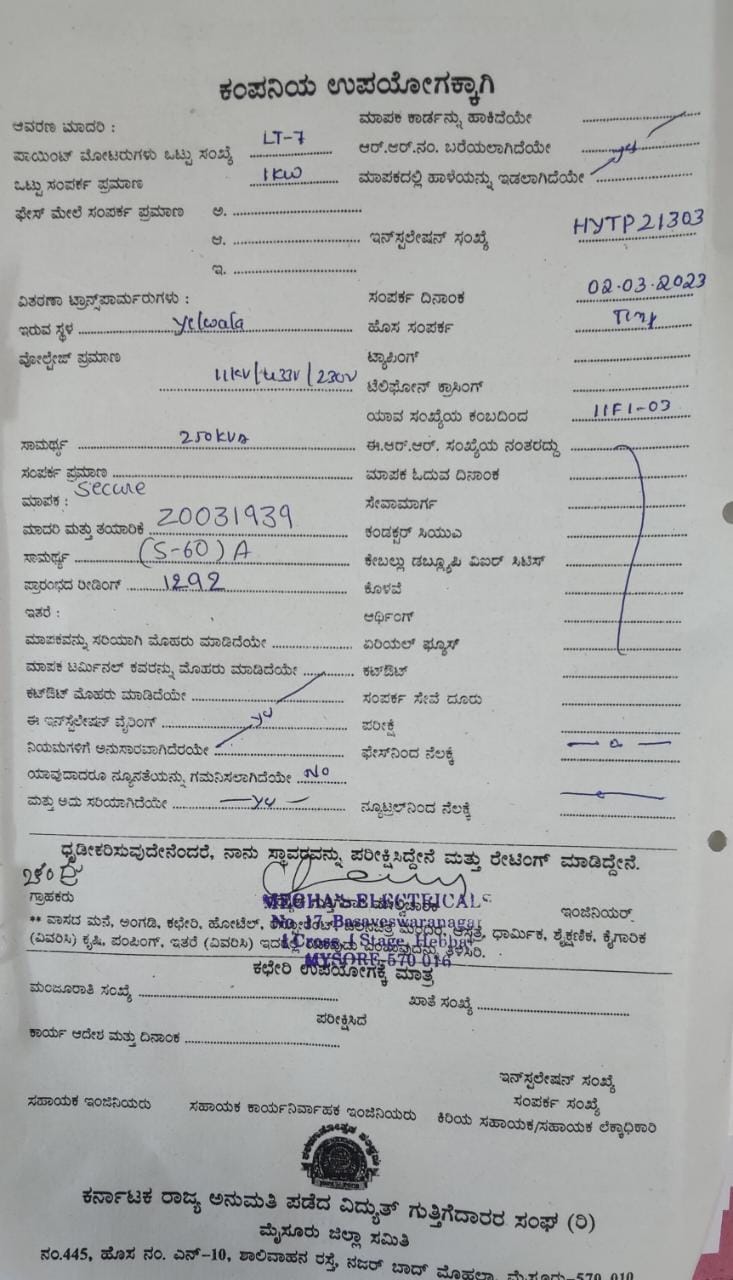 ಕಂಪನಿಯ ಉಪಯೋಗಕ್ಕಾಗಿ
ಆವರಣ ಮಾದರಿ :
ಮಾಪಕ ಕಾರ್ಡನ್ನು ಹಾಕಿದೆಯೇ ....................
ಪಾಯಿಂಟ್ ಮೋಟರುಗಳು ಒಟ್ಟು ಸಂಖ್ಯೆ LT-7
ಆರ್.ಆರ್.ನಂ. ಬರೆಯಲಾಗಿದೆಯೇ yes
ಒಟ್ಟು ಸಂಪರ್ಕ ಪ್ರಮಾಣ 1KW
ಮಾಪಕದಲ್ಲಿ ಹಾಳೆಯನ್ನು ಇಡಲಾಗಿದೆಯೇ ....................
ಫೇಸ್ ಮೇಲೆ ಸಂಪರ್ಕ ಪ್ರಮಾಣ ಅ. ....................
ಆ. .................... ಇನ್‌ಸ್ಟಲೇಷನ್ ಸಂಖ್ಯೆ HYTP21303
ಇ. ....................
ವಿತರಣಾ ಟ್ರಾನ್ಸ್‌ಪಾರ್ಮರುಗಳು :
ಸಂಪರ್ಕ ದಿನಾಂಕ 02.03.2023
ಇರುವ ಸ್ಥಳ Yelwala
ಹೊಸ ಸಂಪರ್ಕ
ವೋಲ್ಟೇಜ್ ಪ್ರಮಾಣ
ಟ್ಯಾಪಿಂಗ್ ....................
11KV/433V/230V
ಟೆಲಿಫೋನ್ ಕ್ರಾಸಿಂಗ್ ....................
ಯಾವ ಸಂಖ್ಯೆಯ ಕಂಬದಿಂದ 11F1-03
ಸಾಮರ್ಥ್ಯ 250KVA
ಈ.ಆರ್.ಆರ್. ಸಂಖ್ಯೆಯ ನಂತರದ್ದು ....................
ಸಂಪರ್ಕ ಪ್ರಮಾಣ ....................
ಮಾಪಕ ಓದುವ ದಿನಾಂಕ ....................
ಮಾಪಕ : Secure
ಸೇವಾಮಾರ್ಗ ....................
ಮಾದರಿ ಮತ್ತು ತಯಾರಿಕೆ 20031939
ಕಂಡಕ್ಟರ್ ಸಿಯುಎ ....................
ಸಾಮರ್ಥ್ಯ (5-60) A
ಕೇಬಲ್ಲು ಡಬ್ಲ್ಯೂಪಿ ವಿಐರ್ ಸಿಟಿಸ್ ....................
ಪ್ರಾರಂಭದ ರೀಡಿಂಗ್ 1292
ಕೊಳವೆ ....................
ಇತರೆ :
ಆರ್ಥಿಂಗ್ ....................
ಮಾಪಕವನ್ನು ಸರಿಯಾಗಿ ಮೊಹರು ಮಾಡಿದೆಯೇ ....................
ಏರಿಯಲ್ ಫ್ಯೂಸ್ ....................
ಮಾಪಕ ಟರ್ಮಿನಲ್ ಕವರನ್ನು ಮೊಹರು ಮಾಡಿದೆಯೇ ....................
ಕಟ್‌ಔಟ್ ....................
ಕಟ್‌ಔಟ್ ಮೊಹರು ಮಾಡಿದೆಯೇ ....................
ಸಂಪರ್ಕ ಸೇವೆ ದೂರು ....................
ಈ ಇನ್‌ಸ್ಟಲೇಷನ್ ವೈರಿಂಗ್ yes
ಪರೀಕ್ಷೆ ....................
ನಿಯಮಗಳಿಗೆ ಅನುಸಾರವಾಗಿದೆರಯೇ ....................
ಫೇಸ್‌ನಿಂದ ನೆಲಕ್ಕೆ — 0 —
ಯಾವುದಾದರೂ ನ್ಯೂನತೆಯನ್ನು ಗಮನಿಸಲಾಗಿದೆಯೇ NO
ಮತ್ತು ಅದು ಸರಿಯಾಗಿದೆಯೇ — yes —
ನ್ಯೂಟ್ರಲ್‌ನಿಂದ ನೆಲಕ್ಕೆ ....................
ಧೃಡೀಕರಿಸುವುದೇನೆಂದರೆ, ನಾನು ಸ್ಥಾವರವನ್ನು ಪರೀಕ್ಷಿಸಿದ್ದೇನೆ ಮತ್ತು ರೇಟಿಂಗ್ ಮಾಡಿದ್ದೇನೆ.
ಗ್ರಾಹಕರು
MEGHA ELECTRICALS
ಇಂಜಿನಿಯರ್
No. 17, Basaveswaranagar
** ವಾಸದ ಮನೆ, ಅಂಗಡಿ, ಕಛೇರಿ, ಹೋಟೆಲ್, ಆಸ್ಪತ್ರೆ, ಧಾರ್ಮಿಕ, ಶೈಕ್ಷಣಿಕ, ಕೈಗಾರಿಕ
I Cross, I Stage, Hebbal
(ವಿವರಿಸಿ) ಕೃಷಿ, ಪಂಪಿಂಗ್, ಇತರೆ (ವಿವರಿಸಿ) ತಿಳಿಸಿರಿ.
MYSORE-570 016
ಕಛೇರಿ ಉಪಯೋಗಕ್ಕೆ ಮಾತ್ರ
ಮಂಜೂರಾತಿ ಸಂಖ್ಯೆ .................... ಖಾತೆ ಸಂಖ್ಯೆ ....................
ಪರೀಕ್ಷಿಸಿದೆ
ಕಾರ್ಯ ಆದೇಶ ಮತ್ತು ದಿನಾಂಕ ....................
ಇನ್‌ಸ್ಟಲೇಷನ್ ಸಂಖ್ಯೆ
ಸಂಪರ್ಕ ಸಂಖ್ಯೆ
ಸಹಾಯಕ ಇಂಜಿನಿಯರು ಸಹಾಯಕ ಕಾರ್ಯನಿರ್ವಾಹಕ ಇಂಜಿನಿಯರು ಕಿರಿಯ ಸಹಾಯಕ/ಸಹಾಯಕ ಲೆಕ್ಕಾಧಿಕಾರಿ
ಕರ್ನಾಟಕ ರಾಜ್ಯ ಅನುಮತಿ ಪಡೆದ ವಿದ್ಯುತ್ ಗುತ್ತಿಗೆದಾರರ ಸಂಘ (ರಿ)
ಮೈಸೂರು ಜಿಲ್ಲಾ ಸಮಿತಿ
ನಂ.445, ಹೊಸ ನಂ. ಎನ್-10, ಶಾಲಿವಾಹನ ರಸ್ತೆ, ನಜರ್ ಬಾದ್ ಮೊಹಲ್ಲಾ, ಮೈಸೂರು-570 010